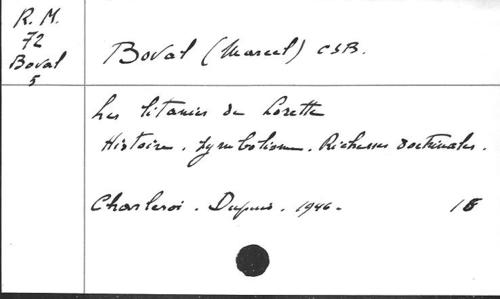 R. M.
72
Boval
5
Boval (Marcel) CSB.
Les litanies de Lorette
Histoire. Symbolisme. Richesses doctrinales.
Charleroi. Dupuis. 1946.